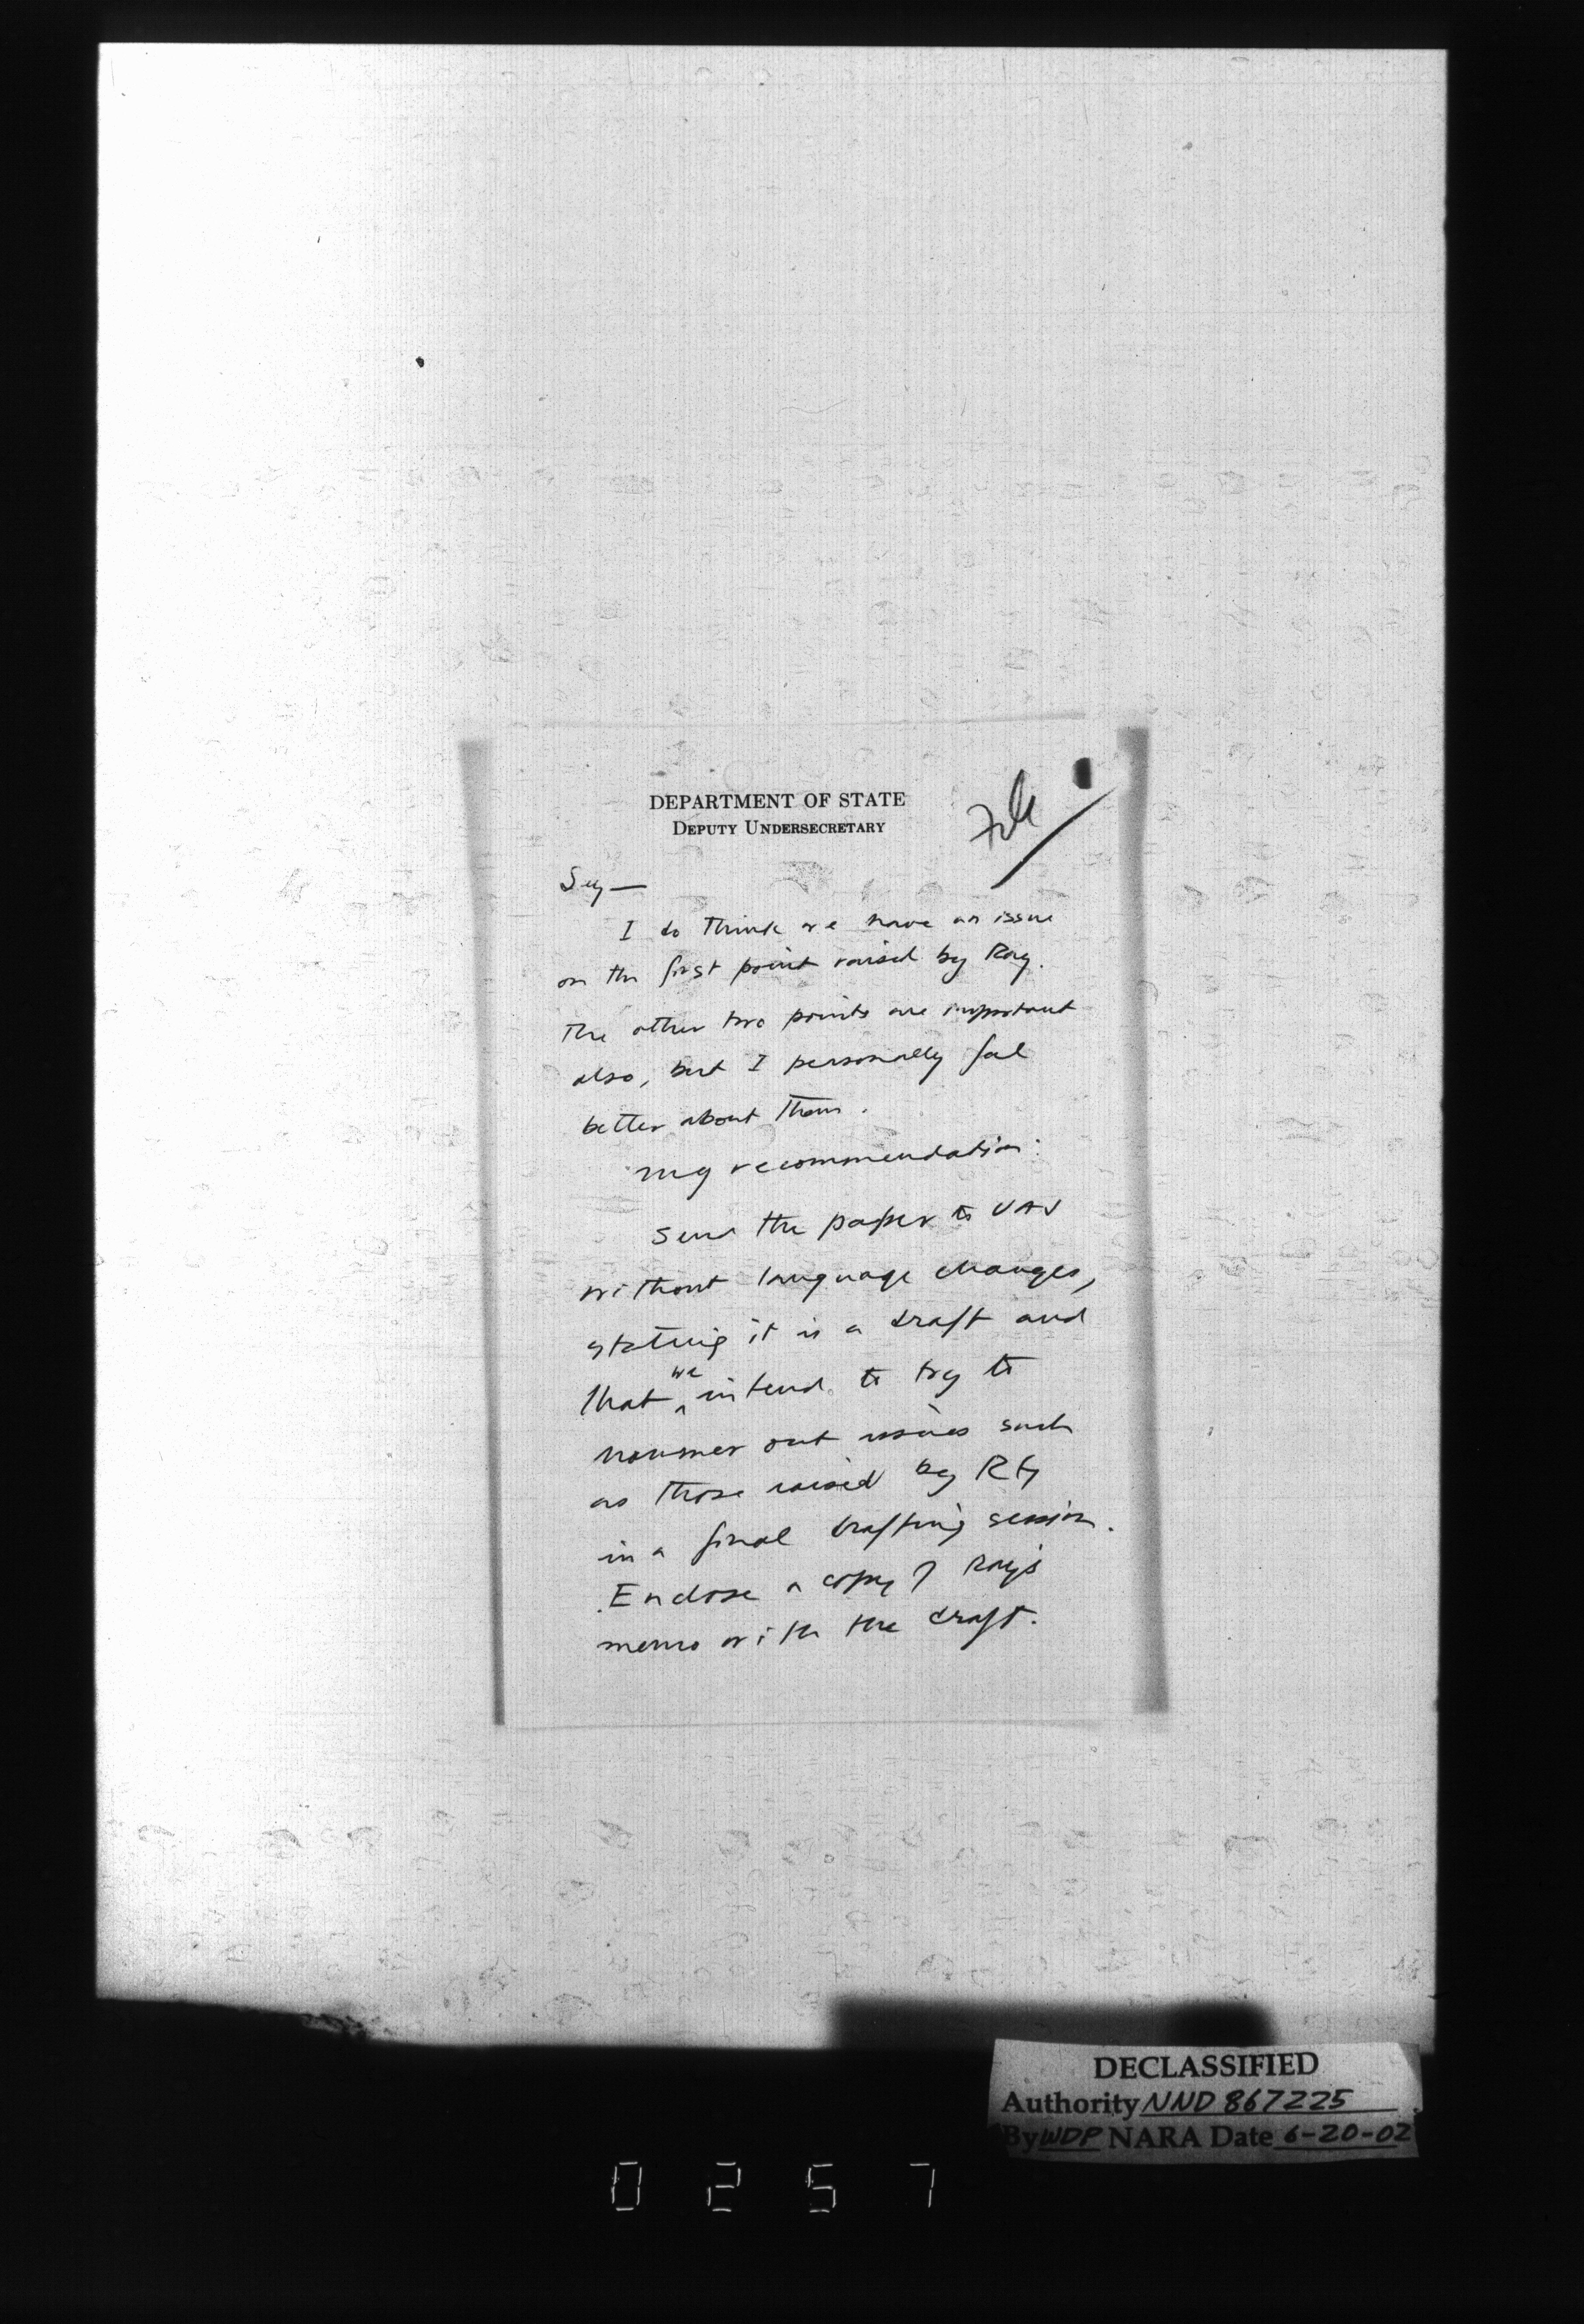 DEPARTMENT OF STATE
DEPUTY UNDERSECRETARY
File
Sey—
I do think we have an issue
on the first point raised by Ray.
The other two points are important
also, but I personally feel
better about them.
My recommendation:
Send the paper to
without language changes,
stating it is a draft and
that we intend to try to
hammer out issues such
as those raised by
in a final drafting session.
Enclose a copy of Ray's
memo with the draft.
DECLASSIFIED
Authority NND 867225
By WDP NARA Date 6-20-02
0257